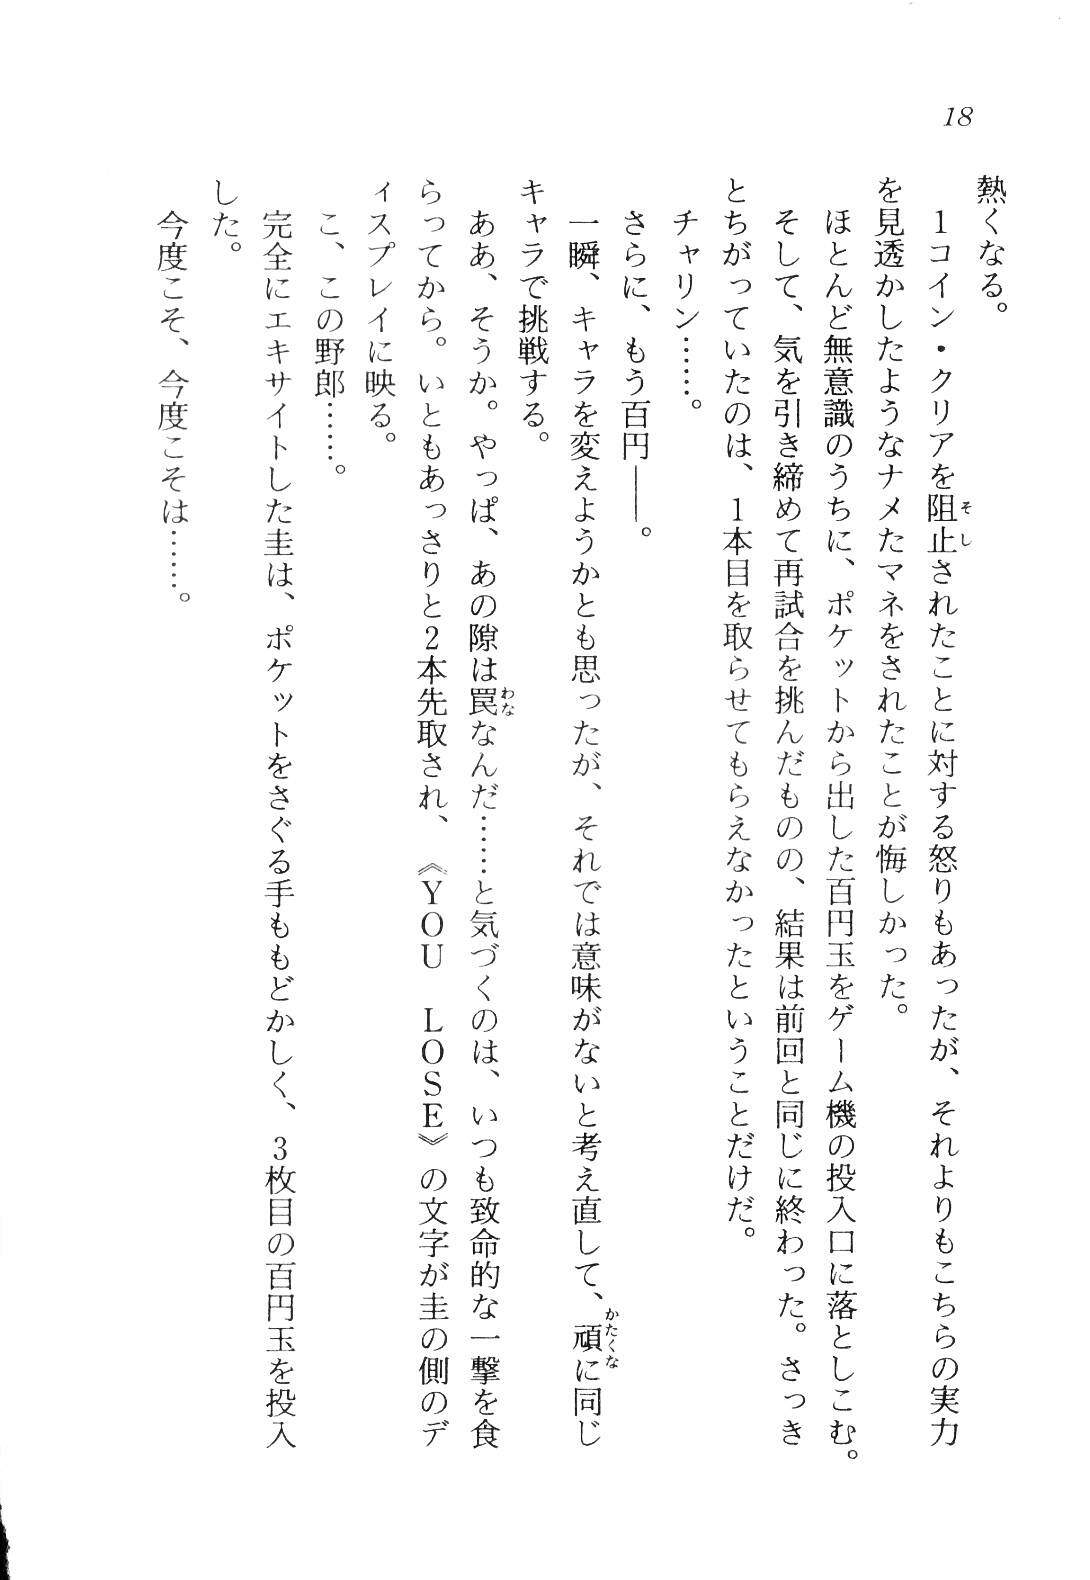 18
熱くなる。
　1コイン・クリアを阻止されたことに対する怒りもあったが、それよりもこちらの実力
を見透かしたようなナメたマネをされたことが悔しかった。
　ほとんど無意識のうちに、ポケットから出した百円玉をゲーム機の投入口に落としこむ。
　そして、気を引き締めて再試合を挑んだものの、結果は前回と同じに終わった。さっき
とちがっていたのは、1本目を取らせてもらえなかったということだけだ。
　チャリン……。
　さらに、もう百円――。
　一瞬、キャラを変えようかとも思ったが、それでは意味がないと考え直して、頑に同じ
キャラで挑戦する。
　ああ、そうか。やっぱ、あの隙は罠なんだ……と気づくのは、いつも致命的な一撃を食
らってから。いともあっさりと2本先取され、《YOU　LOSE》の文字が圭の側のデ
ィスプレイに映る。
　こ、この野郎……。
　完全にエキサイトした圭は、ポケットをさぐる手ももどかしく、3枚目の百円玉を投入
した。
　今度こそ、今度こそは……。